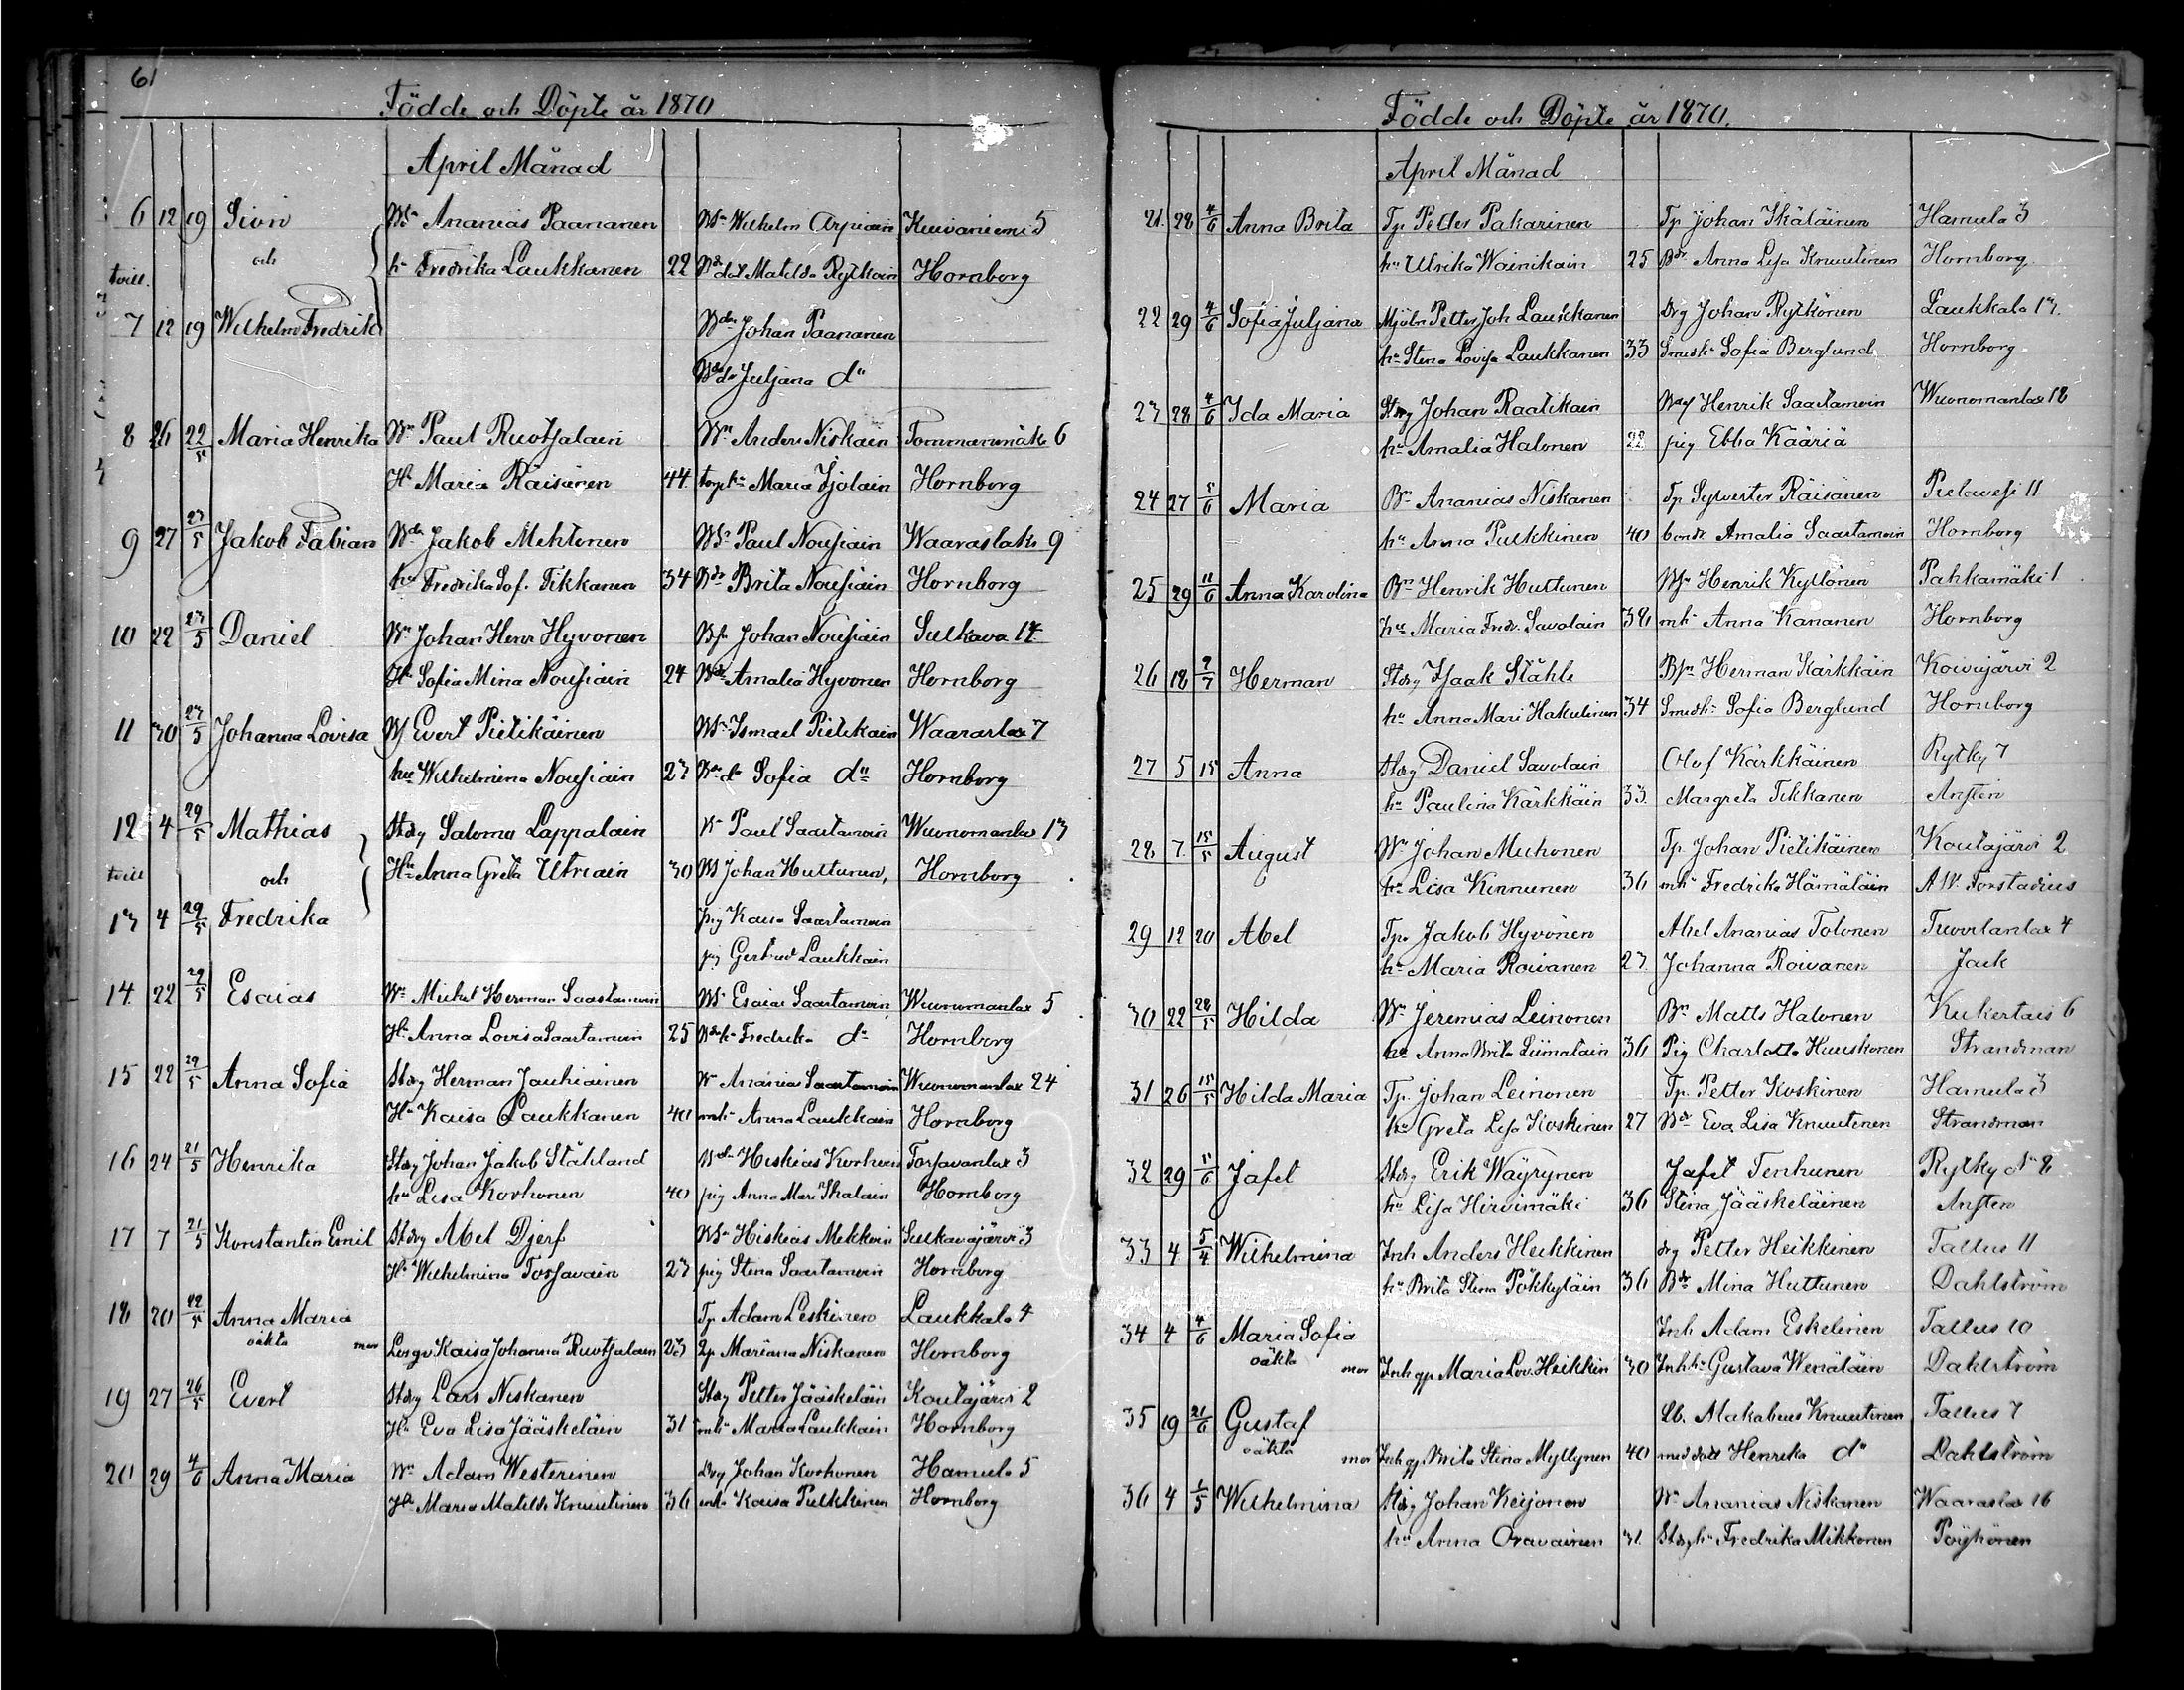 61
Födde och Döpte år 1870
April Månad
6 12 19 Sion Wn Ananias Paananen Wn Wilhelm Arpiain Kuivaniemi 5
och hu Fredrika Laukkanen 22 Wdr dot Matilda Rytkäin Hornborg
tvill.
7 12 19 Wilhelm Fredrik Wdr Johan Paananen
Juljana do
8 26 22/5 Maria Henrika Wn Paul Ruotsalain Wn Anders Niskain Tommarmäki 6
Hu Maria Räisänen 44 torphu Maria Tjolain Hornborg
9 27 23/5 Jakob Fabian Wdr Jakob Mehtonen Wn Paul Nousiain Waaraslaks 9
hu Fredrika Sof. Tikkanen 34 Wdr Brita Nousiain Hornborg
10 22 23/5 Daniel Wn Johan Henr Hyvönen Johan Nousiain Sulkava 14
Hu Sofia Mina Nousiain 24 Amalia Hyvönen Hornborg
11 30 23/5 Johanna Lovisa Evert Pietikäinen Wn Ismael Pietikäin Waaraslax 7
hu Wilhelmina Nousiain 23 Sofia do Hornborg
12 4 29/5 Mathias Stdrg Salomo Lappalain Paul Saastamoin Wuonomanlax 13
tvill och Hu Anna Greta Utriain 30 Johan Huttunen, Hornborg
13 4 29/5 Fredrika pig Kaisa Saastamoin
pig Gertrud Laukkain
14 22 29/5 Esaias Wn Mickel Herman Saastamoin Wn Esaias Saastamoin Wuonomanlax 5
Hu Anna Lovisa Saastamoin 25 Fredrika do Hornborg
15 22 29/5 Anna Sofia Stdrg Herman Jauhiainen Wn Ananias Saastamoin Wuonomanlax 24
Hu Kaisa Laukkanen 40 mhu Anna Laukkain Hornborg
16 24 21/5 Henrika Stdrg Johan Jakob Ståhland Hiskias Korhoin Torsavanlax 3
hu Lisa Korhonen 40 pig Anna Mari Ikalain Hornborg
17 7 21/5 Konstantin Emil Stdrg Abel Djerf Wn Hiskias Mekkoin Sulkavajärvi 3
Hu Wilhelmina Torsavain 23 pig Stina Saastamoin Hornborg
18 30 22/5 Anna Maria Tp Adam Leskinen Laukkala 4
oäkta mor Kaisa Johanna Ruotsalain 23 Mariana Niskanen Hornborg
19 27 26/5 Evert Stdrg Lars Niskanen Stdrg Petter Jääskeläin Koutajärvi 2
Hu Eva Lisa Jääskeläin 31 mhu Maria Laukkain Hornborg
20 29 4/6 Anna Maria Wn Adam Westerinen Drg Johan Korhonen Hamula 5
Hu Maria Matilda Knuutinen 36 mhu Kaisa Pulkkinen Hornborg
Födde och Döpte år 1870.
April Månad
21. 28 4/6 Anna Brita Tp Petter Pakarinen Tp Johan Ikäläinen Hamula 3
hu Ulrika Wäinikäin 25 Bdr Anna Lisa Knuutinen Hornborg
22 29 4/6 Sofia Juljana Mjöln Petter Joh Laukkanen Drg Johan Rytkönen Laukkala 13.
hu Stina Lovisa Laukkanen 33 Smedhu Sofia Berglund Hornborg
23 28 4/6 Ida Maria Stdrg Johan Raatikain Henrik Saastamoin Wuonomanlax 18
hu Amalia Halonen 22 pig Ebba Kääriä
24 27 5/6 Maria Bn Ananias Niskanen Tp Sylvester Räisänen Pielavesi 11
hu Anna Pulkkinen 40 bondr Amalia Saastamoin Hornborg
25 29 11/6 Anna Karolina Bn Henrik Huttunen Henrik Kyllönen Pahkamäki 1
hu Maria Fred. Savolain 38 mhu Anna Kananen Hornborg
26 18 2/7 Herman Stdrg Isaak Ståhle Herman Kärkkäin Koivujärvi 2
hu Anna Mari Hakulinen 34 Smedhu Sofia Berglund Hornborg
27 5 15 Anna Stdrg Daniel Savolain Olof Kärkkäinen Rytky 7
hu Paulina Kärkkäin 33. Margreta Tikkanen Ansten
28 7. 15/5 August Wn Johan Muhonen Tp. Johan Pietikäinen Koutajärvi 2
hu Lisa Kinnunen 36 mhu Fredrika Hämäläin A W. Forstadius
29 12 20 Abel Tp. Jakob Hyvönen Abel Ananias Tolonen Tuovilanlax 4
hu Maria Roivanen 23. Johanna Roivanen Jack
30 22 28/5 Hilda Wn Jeremias Leinonen Bn Matts Halonen Kukertais 6
hu Anna Brita Liimatain 36 Pig Charlotta Huuskonen Strandman
31 26 15/5 Hilda Maria Tp. Johan Leinonen Tp. Petter Koskinen Hamula 3
hu Greta Lisa Koskinen 27 Eva Lisa Knuutinen Strandman
32 29 11/6 Jafet Stdrg Erik Wäyrynen Jafet Tenhunen Rytky No 8
hu Lisa Hirvimäki 36 Stina Jääskeläinen Ansten
33 4 5/4 Wilhelmina Inh Anders Heikkinen drg Petter Heikkinen Tallus 11
hu Brita Stina Pökkyläin 36 Bdr Mina Huttunen Dahlström
34 4 4/6 Maria Sofia Inh Adam Eskelinen Tallus 10
oäkta mor Inh qp Maria Lov. Heikkin 30 Inh hu Gustava Wenäläin Dahlström
35 19 21/6 Gustaf Lb. Makabeus Knuutinen Tallus 7
oäkta mor Inh qp Brita Stina Myllynen 40 med dott Henrika do Dahlström
36 4 1/5 Wilhelmina Stdrg Johan Keijonen Wn Ananias Niskanen Waaraslax 16
hu Anna Oravainen 31. Stdrghu Fredrika Mikkonen Pöyhönen